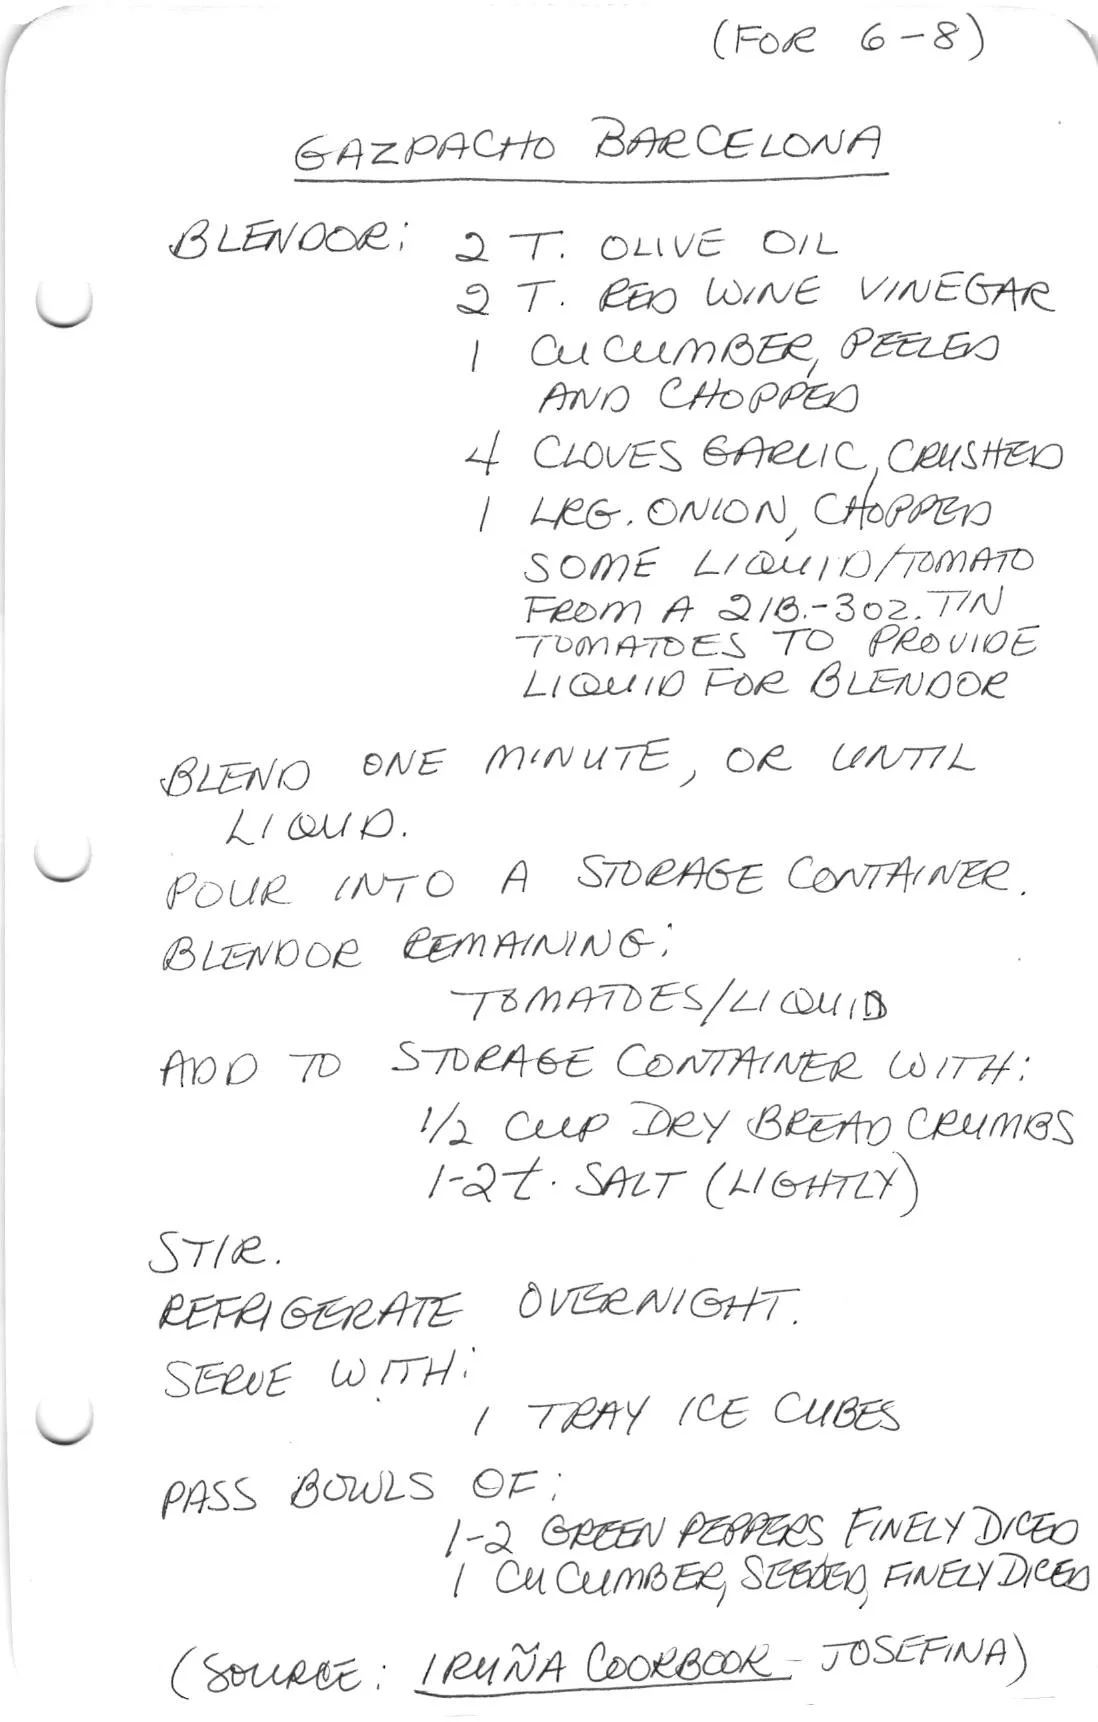 (FOR 6-8)
GAZPACHO BARCELONA
BLENDOR: 2 T. OLIVE OIL
2 T. RED WINE VINEGAR
1 CUCUMBER, PEELED
AND CHOPPED
4 CLOVES GARLIC, CRUSHED
1 LRG. ONION, CHOPPED
SOME LIQUID/TOMATO
FROM A 2 lB.-3 OZ. TIN
TOMATOES TO PROVIDE
LIQUID FOR BLENDOR
BLEND ONE MINUTE, OR UNTIL
LIQUD.
POUR INTO A STORAGE CONTAINER.
BLENDOR REMAINING:
TOMATOES/LIQUID
ADD TO STORAGE CONTAINER WITH:
1/2 CUP DRY BREAD CRUMBS
1-2 t. SALT (LIGHTLY)
STIR.
REFRIGERATE OVERNIGHT.
SERVE WITH:
1 TRAY ICE CUBES
PASS BOWLS OF:
1-2 GREEN PEPPERS FINELY DICED
1 CUCUMBER, SEEDED, FINELY DICED
(SOURCE: IRUÑA COOKBOOK - JOSEFINA)